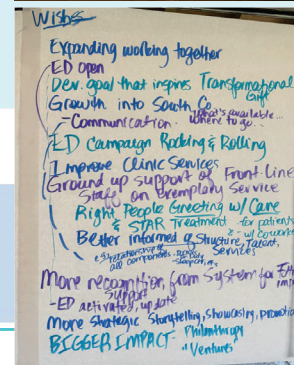 Wishes
Expanding working together
ED open
Dev. goal that inspires Transformational
Gift
Growth into South Co.
- Communication - what's available...
where to go...
ED Campaign Rocking & Rolling
Improve Clinic Services
Ground up support of Front-Line
Staff on Exemplary Service
Right People Greeting w/ Care
& STAR Treatment - for patients
& - w/ coworkers
Better informed of Structure, Talent,
Services
all components
More recognition from System for
Support
- ED activated, update
More Strategic Storytelling, Showcasing, promotion
BIGGER IMPACT - Philanthropy
"Ventures"